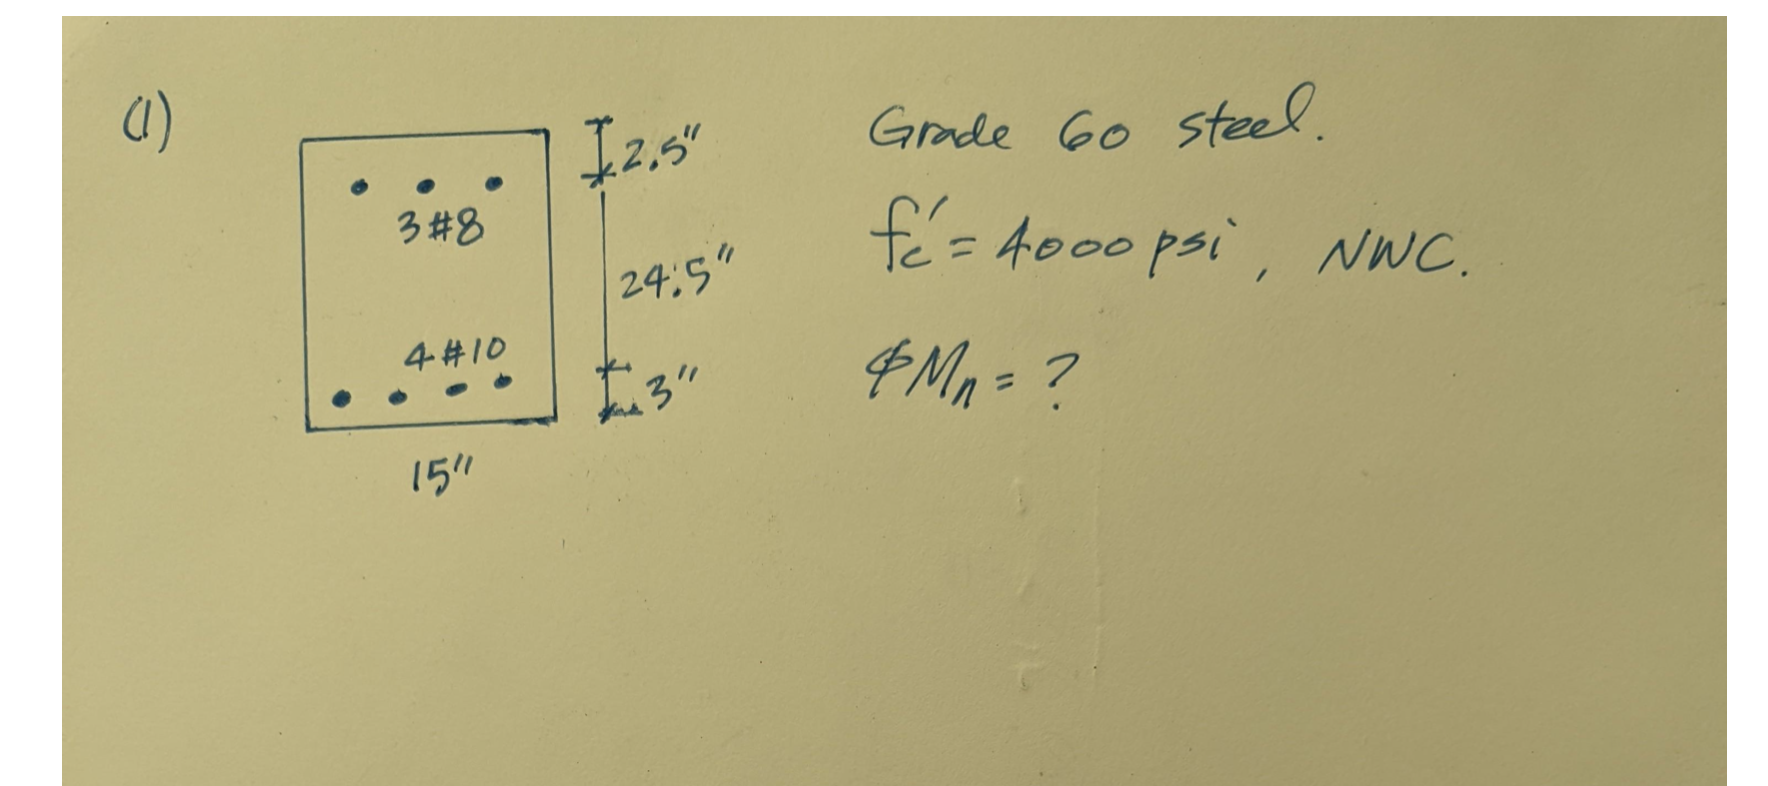 (1)
2.5"
Grade 60 steel.
3#8
fc' = 4000 psi, NWC.
24.5"
4#10
3"
ϕMn = ?
15"